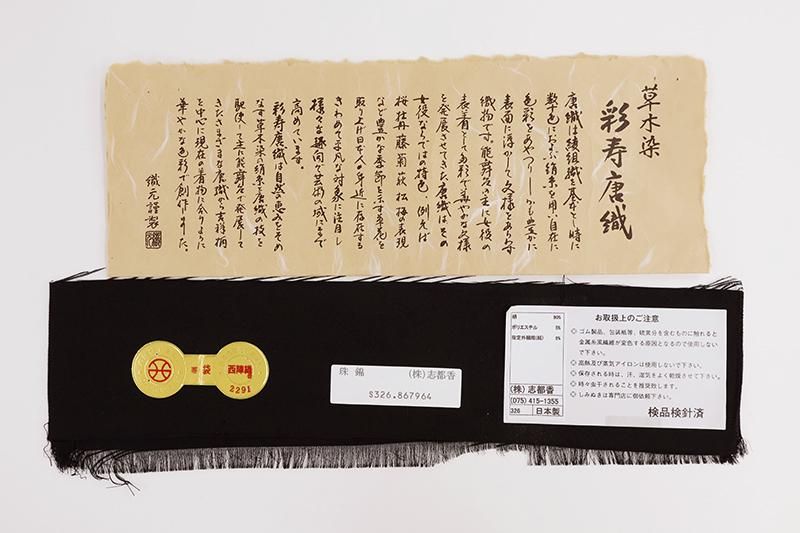 草木染
彩寿唐織
唐織は綾組織を基本とし時に
数十色におよぶ絹糸を用い自在に
色彩をあやつりしかも豊かに
表面に浮かして文様をあらわす
織物です。能舞台の主に女役の
表着として多彩で華やかな文様
を発展させてきた唐織はその
女役ならではの特色、例えば
桜牡丹藤菊萩松梅の表現
など豊かな季節を示す草花を
取り上げ日本人の身近に存在する
きわめて平凡な対象に注目し
様々な趣向で芸術の域にまで
高めています。
彩寿唐織は自然の恵みをそめ
なす草木染の絹糸と唐織の技を
駆使して主に能舞台で発展して
きたさまざまな唐織から吉祥柄
を中心に現在の着物に合うように
華やかな色彩で創作しました。
織元謹製
帯 袋 西陣織
2291
珠錦 (株)志都香
S326.867964
絹 90%
ポリエステル 5%
指定外繊維(紙) 5%
(株)志都香
(075)415-1355
326 日本製
お取扱上のご注意
◎ゴム製品、包装紙等、硫黄分を含むものに触れると
金属糸風繊維が変色する原因となるので使用しない
で下さい。
◎高熱及び蒸気アイロンは使用しないで下さい。
◎保存される時は、汗、湿気をよく乾燥させて下さい。
◎時々虫干されることを推奨致します。
◎しみぬきは専門店に御依頼下さい。
検品検針済